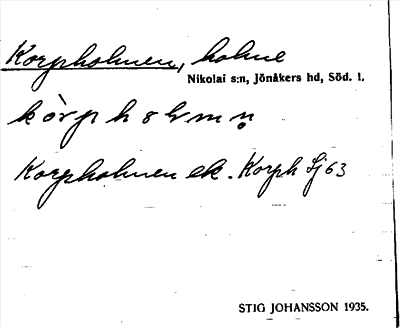 Korpholmen, holme
Nikolai s:n, Jönåkers hd, Söd. l.
kòrphɷlmn̥
Korpholmen ek. Korph Sj 63
STIG JOHANSSON 1935.